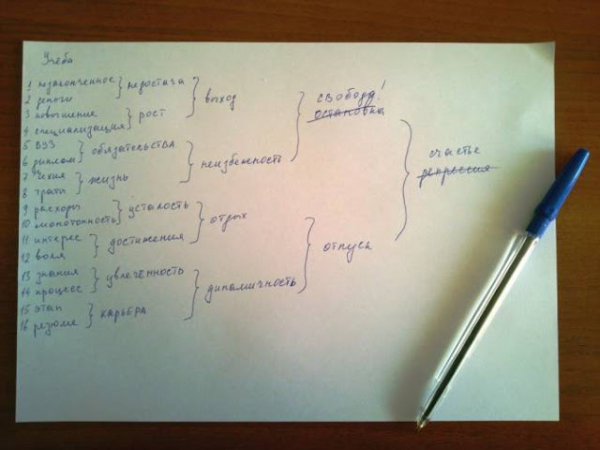 Учёба
1 незаконченное
2 деньги
3 повышение
4 специализация
5 ВУЗ
6 диплом
7 Чехия
8 траты
9 расходы
10 монотонность
11 интерес
12 воля
13 знания
14 процесс
15 этап
16 резюме
недостача
рост
обязательства
жизнь
усталость
достижения
увлечённость
карьера
выход
неизбежность
отдых
динамичность
свобода!
остановка
отпуск
счастье
депрессия